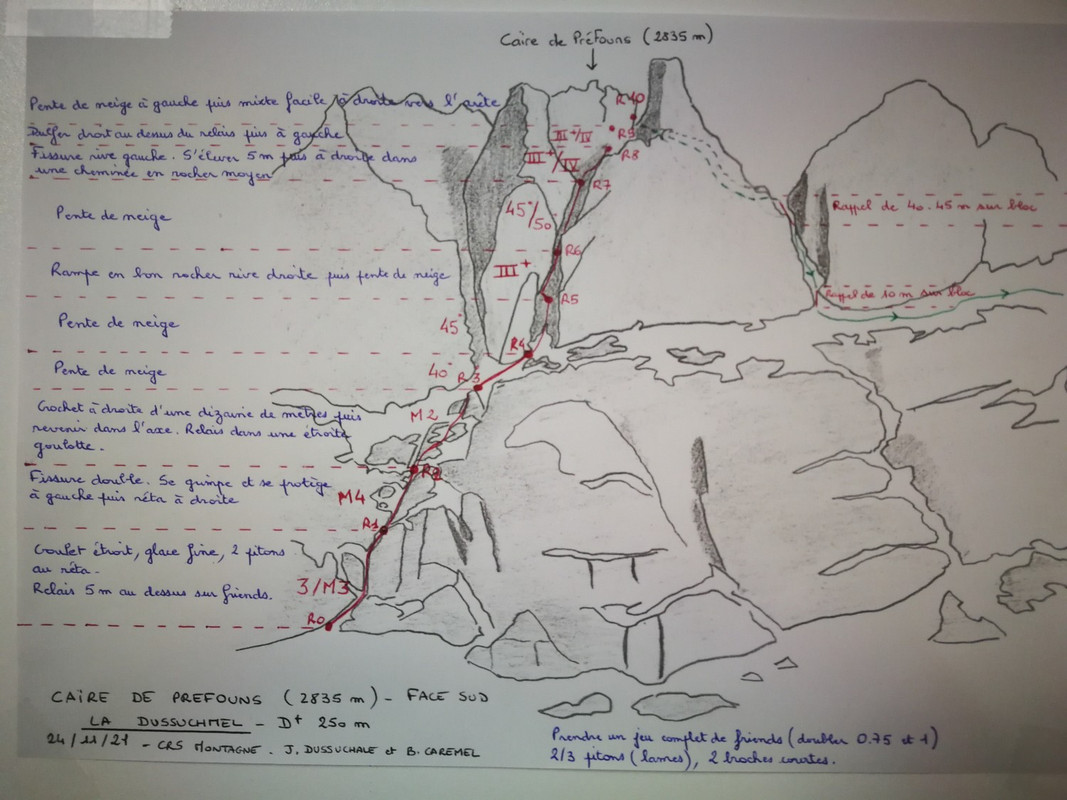 Caire de Préfouns (2835 m)
Pente de neige à gauche puis mixte facile à droite vers l'arête
R10
Dulfer droit au dessus du relais puis à gauche
III+/IV
R9
Fissure rive gauche. S'élever 5 m puis à droite dans
une cheminée en rocher moyen
III+/IV
R8
R7
Pente de neige
45°/50
Rappel de 40.45 m sur bloc
R6
Rampe en bon rocher rive droite puis pente de neige
III+
R5
Rappel de 10 m sur bloc
Pente de neige
45°
R4
Pente de neige
40°
R3
Crochet à droite d'une dizaine de mètres puis
revenir dans l'axe. Relais dans une étroite
goulotte.
M2
R2
Fissure double. Se grimpe et se protège
à gauche puis réta à droite
M4
R1
Goulet étroit, glace fine, 2 pitons
au réta.
Relais 5 m au dessus sur friends.
3/M3
R0
CAIRE DE PREFOUNS (2835 m) - FACE SUD
LA DUSSUCHMEL - D+ 250 m
24/11/21 - CRS MONTAGNE. J. DUSSUCHALE et B. CAREMEL
Prendre un jeu complet de friends (doubler 0.75 et 1)
2/3 pitons (lames), 2 broches courtes.